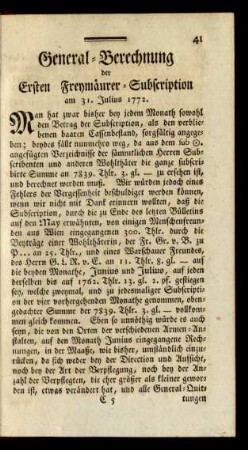 41
General-Berechnung
der
Ersten Freymäurer-Subscription
am 31. Julius 1772.
Man hat zwar bisher bey jedem Monath sowohl
den Betrag der Subscription, als den verblie-
benen baaren Cassenbestand, sorgfältig angege-
ben; beydes fällt nunmehro weg, da aus dem sub ☉.
angefügten Verzeichnisse der sämmtlichen Herren Sub-
scribenten und anderen Wohlthäter die ganze subscri-
birte Summe an 7839. Thlr. 3. gl. — zu ersehen ist,
und berechnet werden muß. Wir würden jedoch eines
Fehlers der Vergessenheit beschuldiget werden können,
wenn wir nicht mit Dank erinnern wollten, daß die
Subscription, durch die zu Ende des letzten Bülletins
auf den May erwähnten, von einigen Menschenfreun-
den aus Wien eingegangenen 300. Thlr. durch die
Beyträge einer Wohlthäterin, der Fr. Gr. v. B. zu
P... an 25. Thlr., und einer Warschauer Freundes,
des Herrn G. L. R. v. E. an 11. Thlr. 3. gl. — auf
die beyden Monathe, Junius und Julius, auf jeden
derselben bis auf 1761. Thlr. 13. gl. 2. pf. gestiegen
sey, welche zweymal, und zu jedesmaliger Subscription
der vier vorhergehenden Monathe genommen, oben-
gedachter Summe der 7839. Thlr. 3. gl. — vollkom-
men gleich kommen. Eben so unnöthig würde es auch
seyn, die von den Orten der verschiedenen Armen-An-
stalten, auf den Monath Junius eingegangene Rech-
nungen, in der Maaße, wie bisher, umständlich einzu-
rücken, da sich weder bey der Direction und Aufsicht,
noch bey der Art der Verpflegung, noch bey der An-
zahl der Verpflegten, die eher größer als kleiner gewor-
den ist, etwas verändert hat, und alle General-Quit-
C 5 tungen